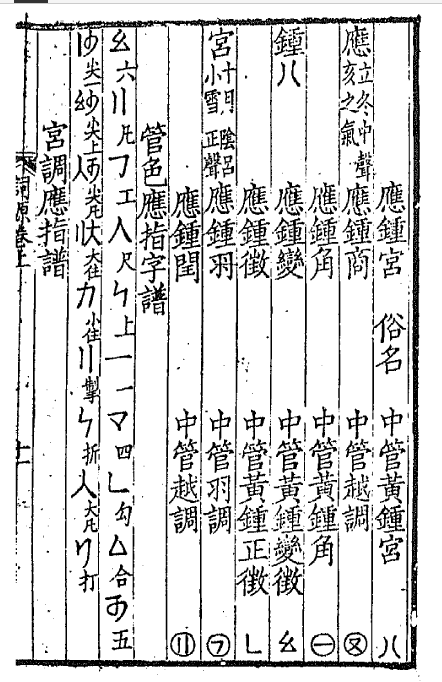 應鍾宮 俗名 中管黃鍾宮 八
應 立冬中聲 亥之氣 應鍾商 中管越調 ㊅
應鍾角 中管黃鍾角 ㊀
鍾八 應鍾變 中管黃鍾變徵 幺
應鍾徵 中管黃鍾正徵 ㄴ
宮 十月陰呂 小雪正聲 應鍾羽 中管羽調 ㋫
應鍾閏 中管越調
管色應指字譜
幺六 〢凡 フ工 人尺 ㄣ上 一一 マ四 ㄴ勾 ム合 五
尖一 尖上 尖凡 大住 力小住 〢掣 ㄣ折 人大凡 リ打
宮調應指譜
詞源卷上
十一